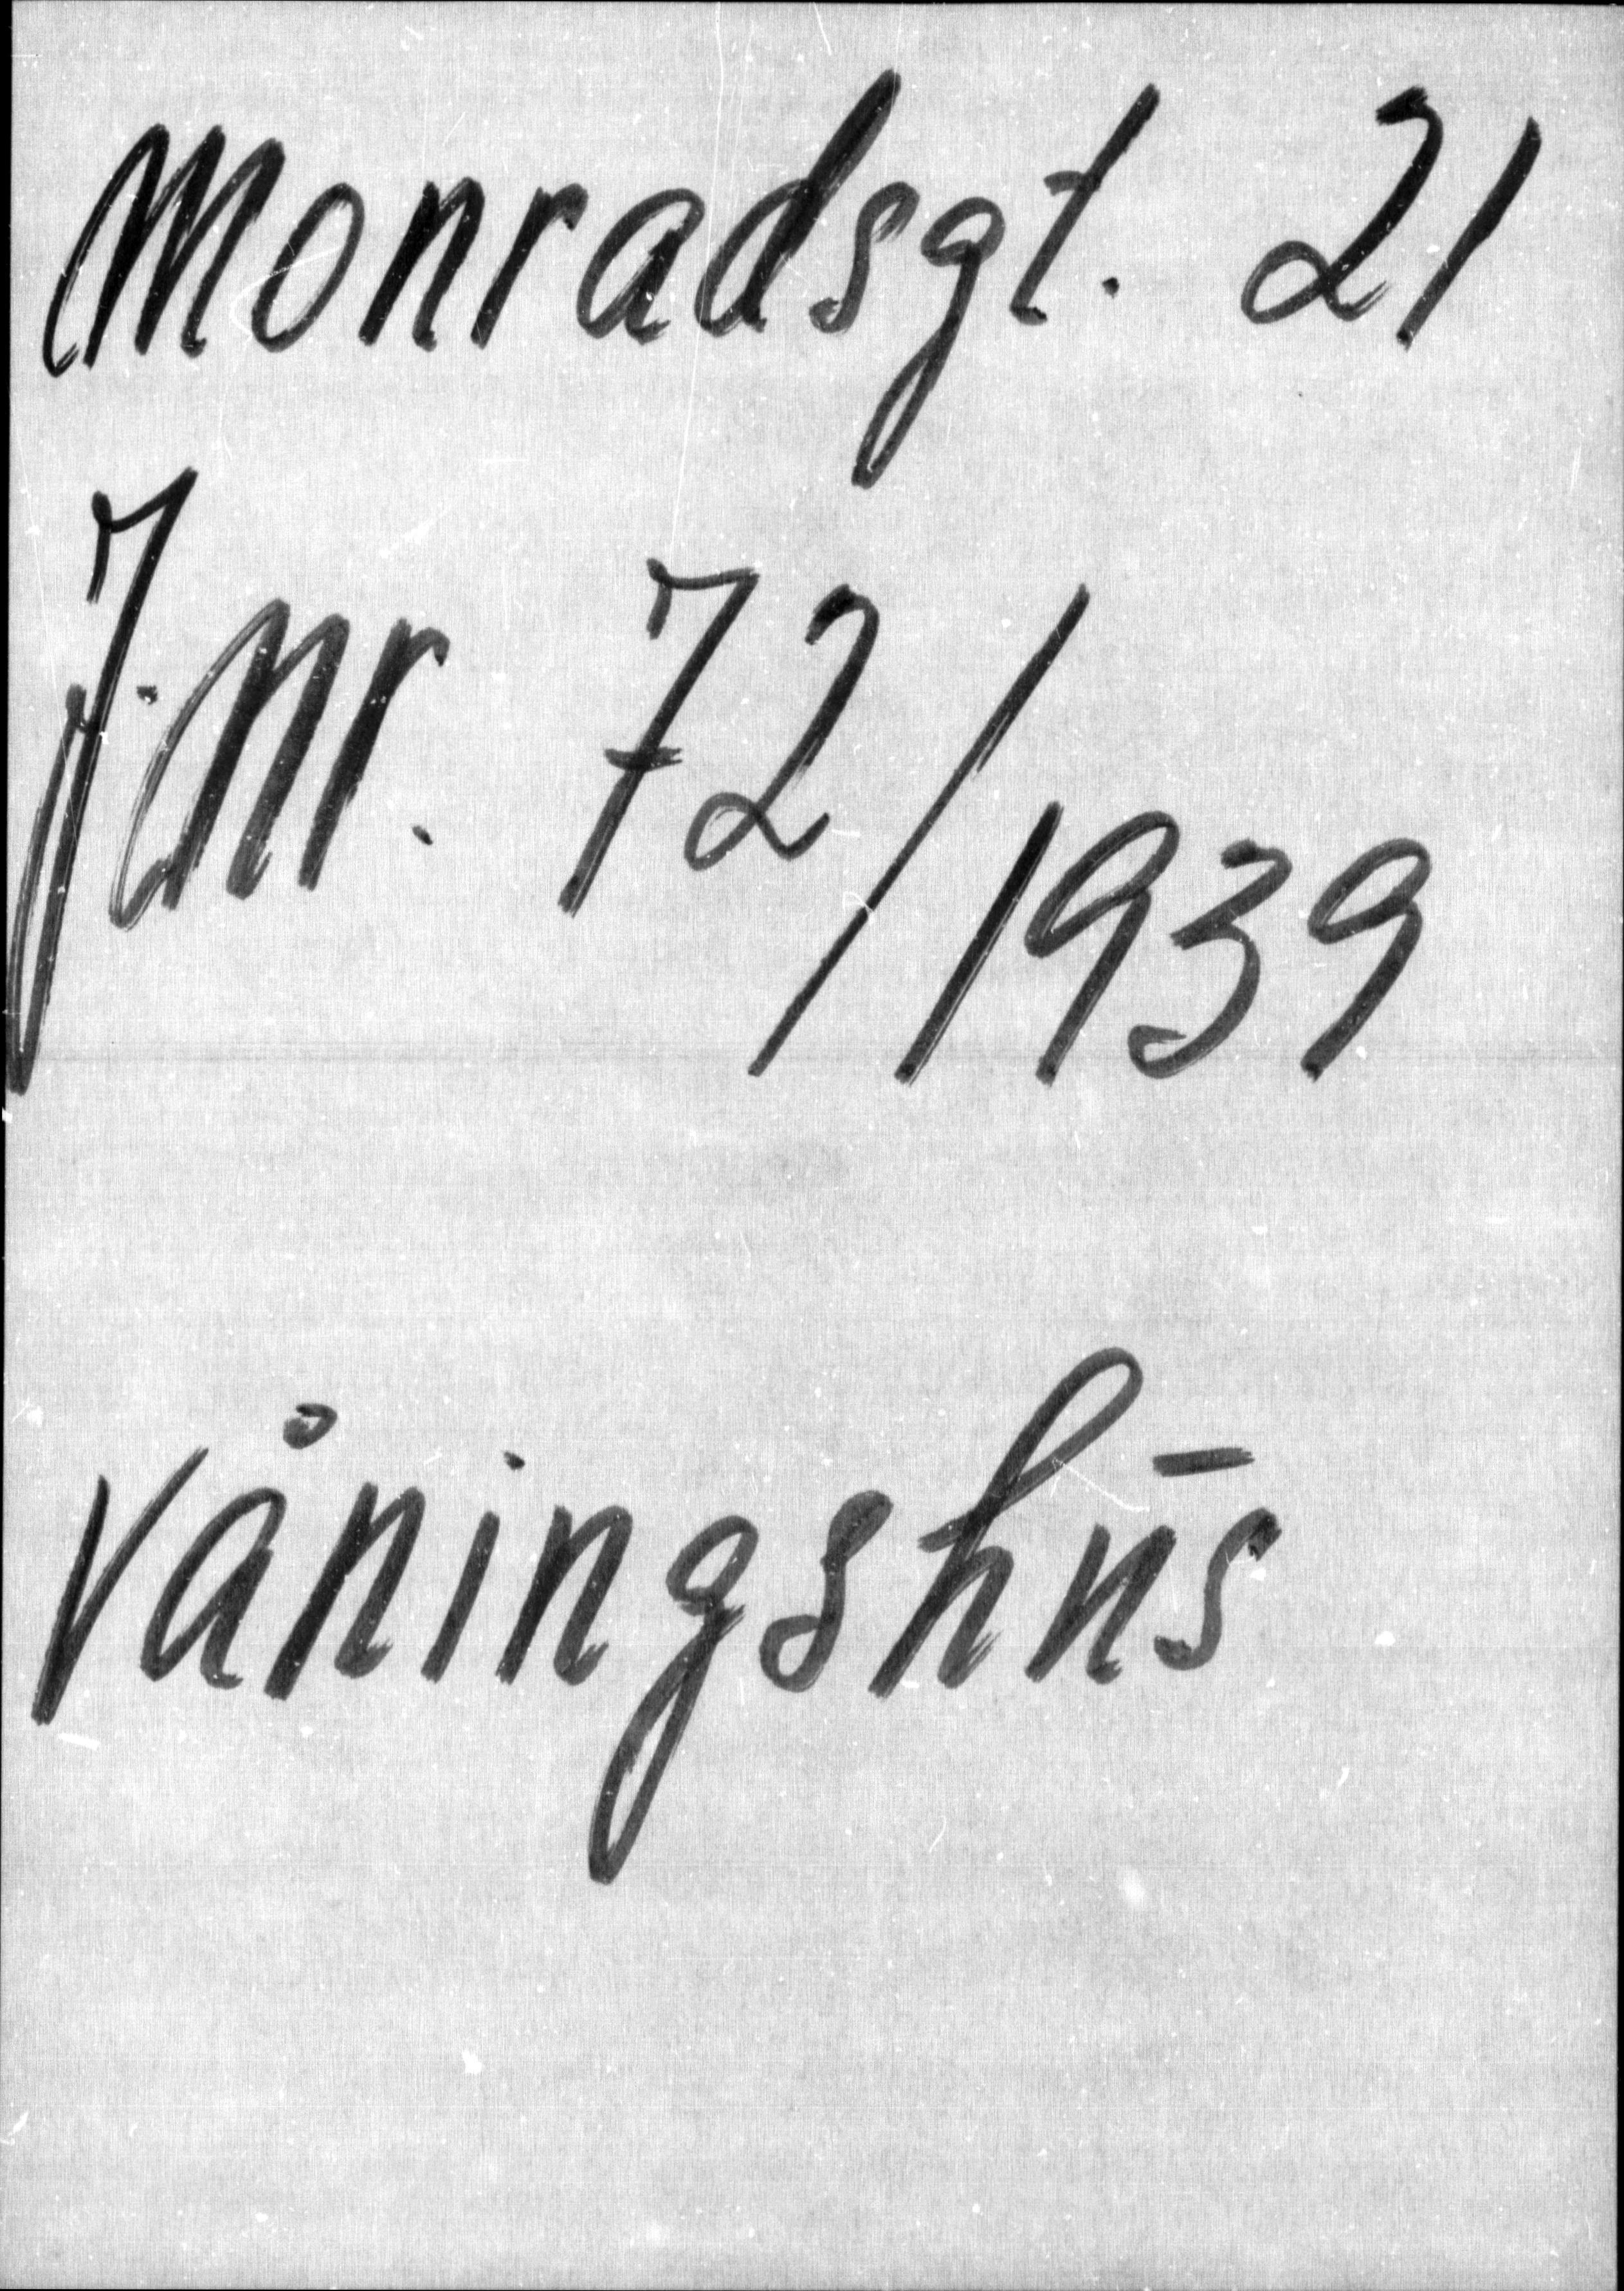 Monradsgt. 21
J.nr. 72/1939
våningshūs